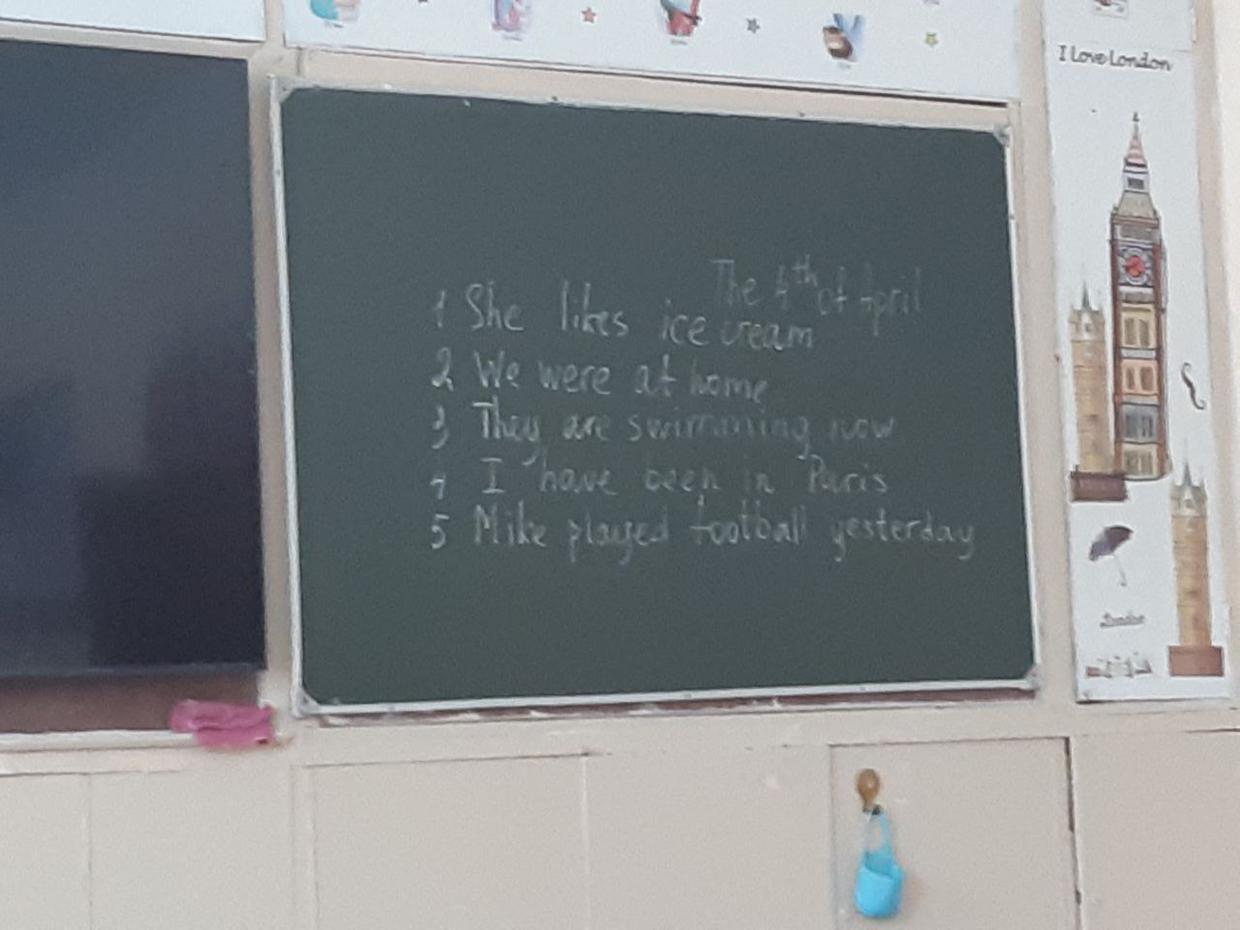 I love London
The 4th of April
1 She likes ice cream
2 We were at home
3 They are swimming now
4 I have been in Paris
5 Mike played football yesterday
London